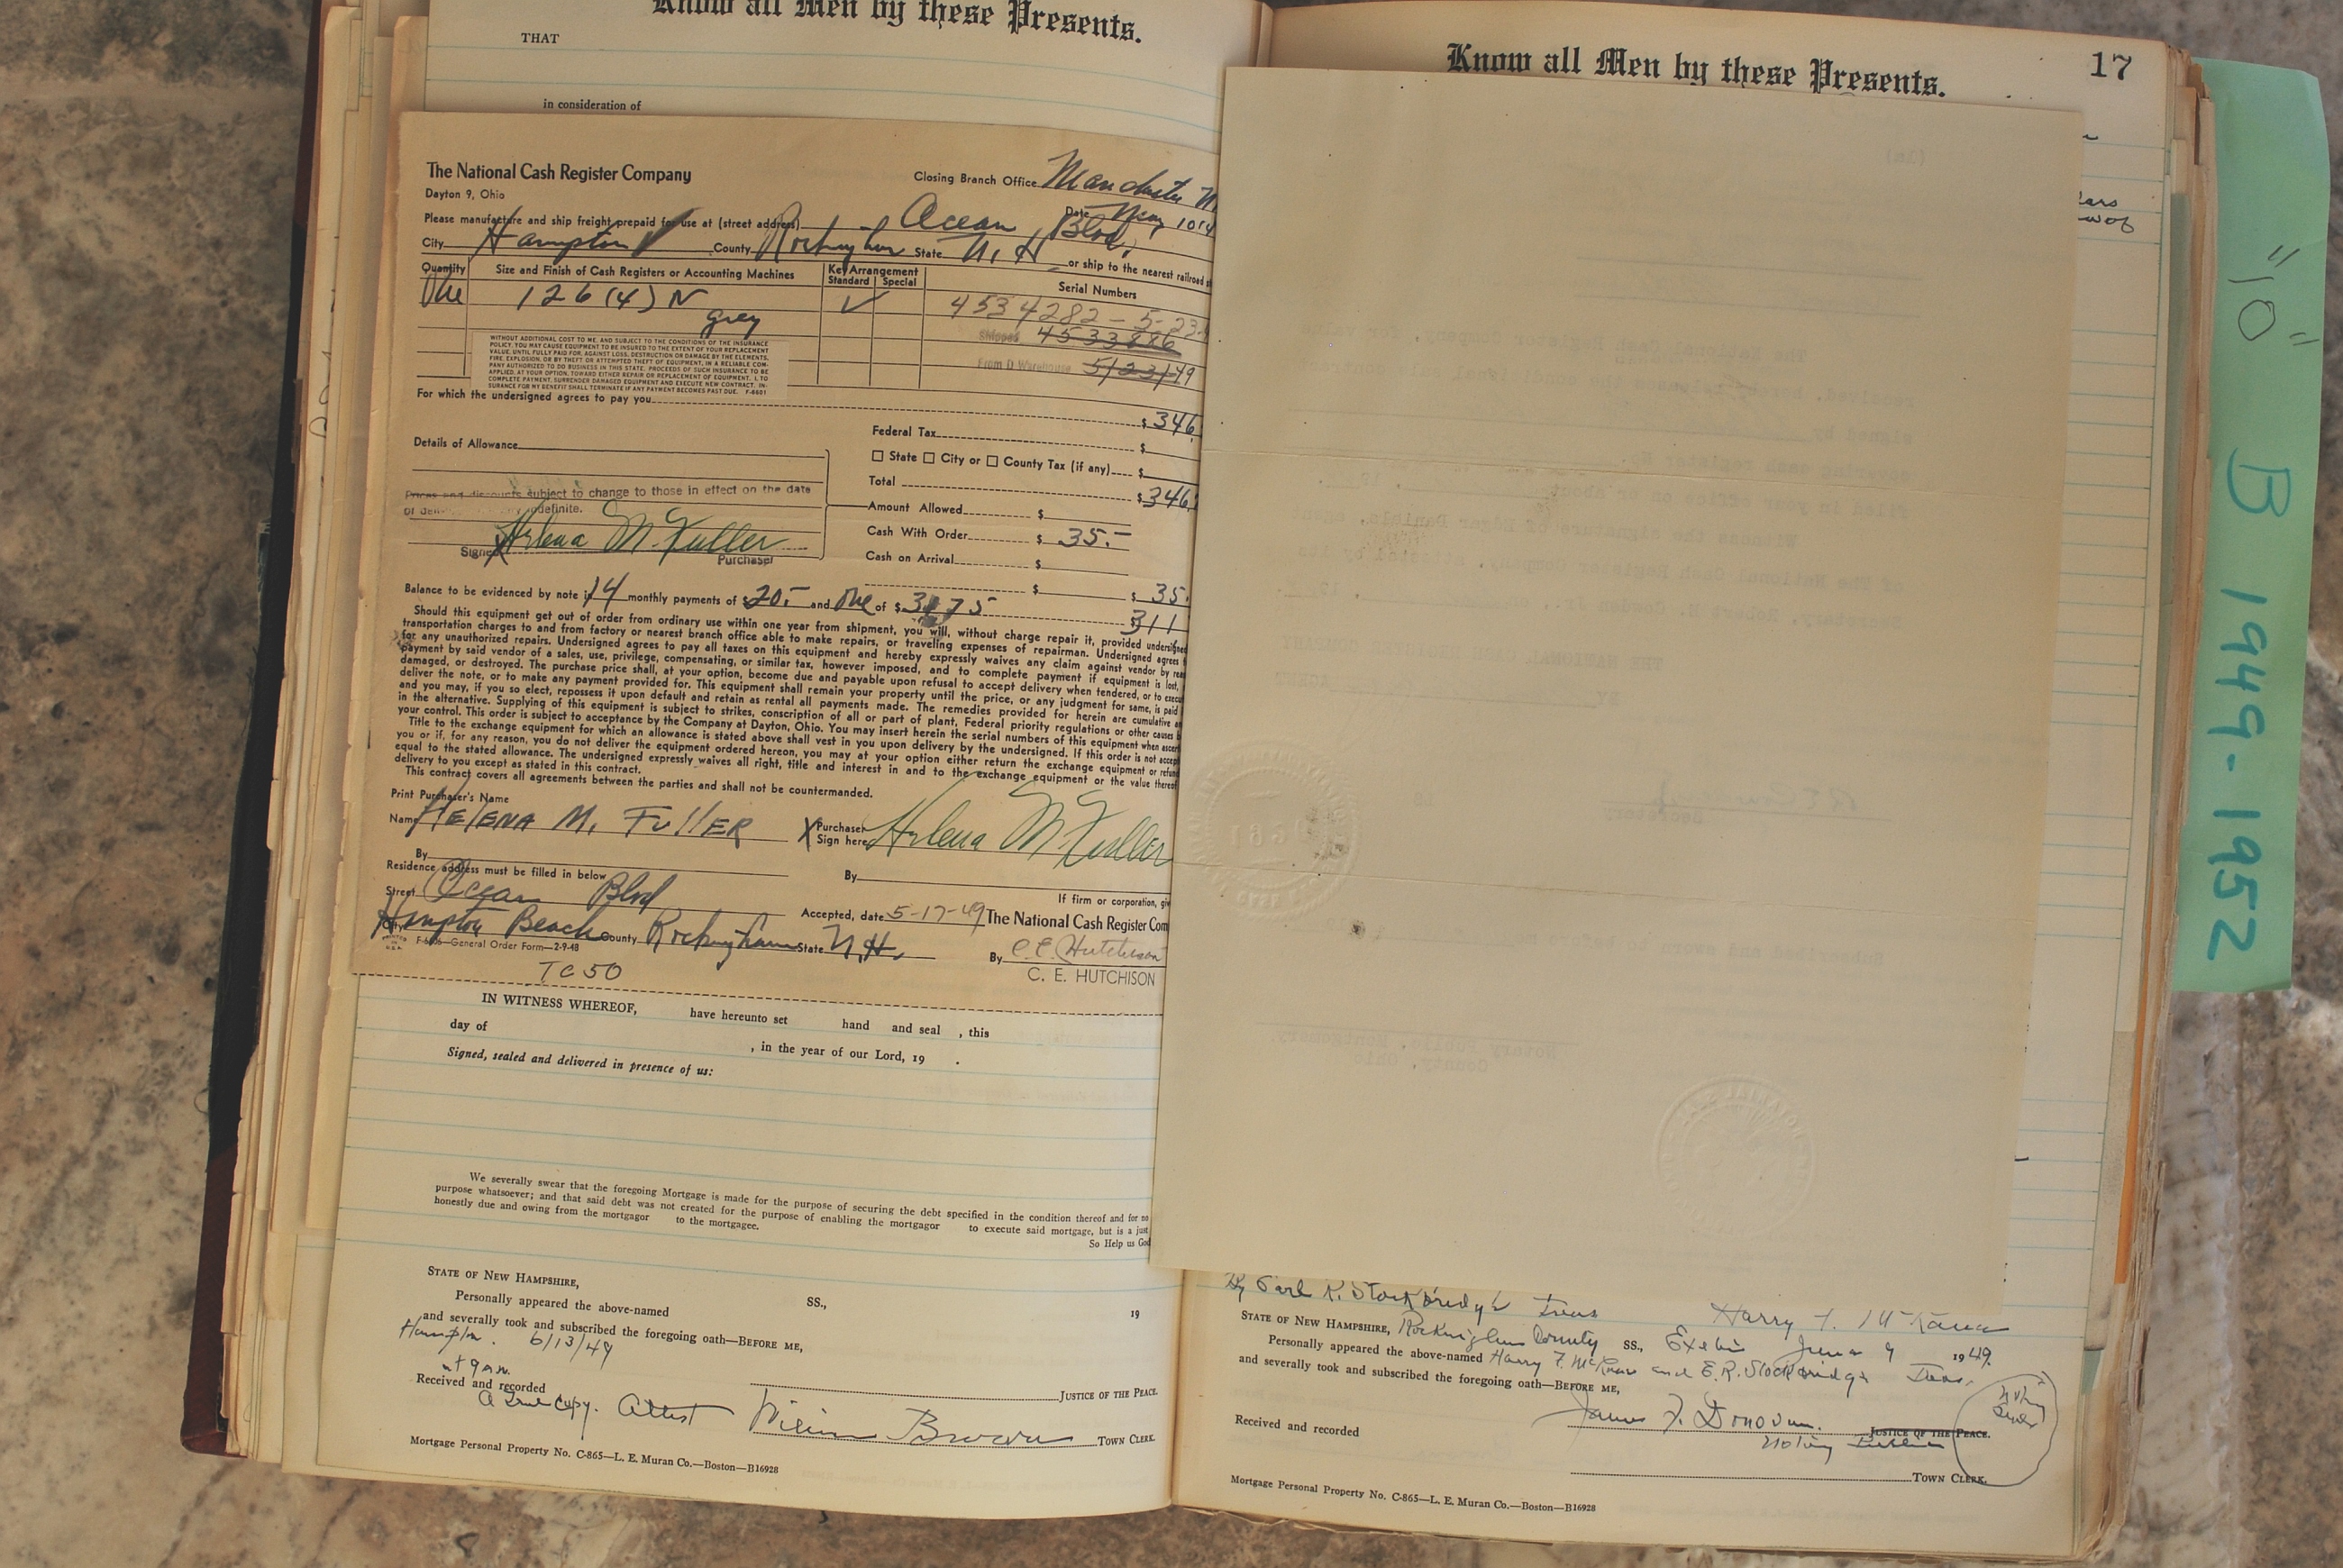 Know all Men by these Presents.
THAT
in consideration of
The National Cash Register Company
Dayton 9, Ohio
Closing Branch Office Manchester N
Date May 10
Please manufacture and ship freight prepaid for use at (street address) Ocean Blvd.
City Hampton County Rockingham State N. H. or ship to the nearest railroad
Quantity Size and Finish of Cash Registers or Accounting Machines Key Arrangement Standard Special Serial Numbers
One 126 (4) N ✓ 4534282 - 5-23-
grey
Shipped 4533886
From D Warehouse 5/23/49
WITHOUT ADDITIONAL COST TO ME, AND SUBJECT TO THE CONDITIONS OF THE INSURANCE
POLICY, YOU MAY CAUSE EQUIPMENT TO BE INSURED TO THE EXTENT OF YOUR REPLACEMENT
VALUE, UNTIL FULLY PAID FOR, AGAINST LOSS, DESTRUCTION OR DAMAGE BY THE ELEMENTS,
FIRE, EXPLOSION, OR BY THEFT OR ATTEMPTED THEFT OF EQUIPMENT, IN A RELIABLE COM-
PANY AUTHORIZED TO DO BUSINESS IN THIS STATE. PROCEEDS OF SUCH INSURANCE TO BE
APPLIED, AT YOUR OPTION, TOWARD EITHER REPAIR OR REPLACEMENT OF EQUIPMENT. I, TO
COMPLETE PAYMENT, SURRENDER DAMAGED EQUIPMENT AND EXECUTE NEW CONTRACT. IN-
SURANCE FOR MY BENEFIT SHALL TERMINATE IF ANY PAYMENT BECOMES PAST DUE. F-6601
For which the undersigned agrees to pay you $ 346
Federal Tax $
Details of Allowance
☐ State ☐ City or ☐ County Tax (if any) $
Total $ 346
Prices and discounts subject to change to those in effect on the date
Amount Allowed $
Cash With Order $ 35.-
Signed Helena M. Fuller
Purchaser
Cash on Arrival $
$ $ 35.
Balance to be evidenced by note in 14 monthly payments of $ 20.- and One of $ 31 75 311
Should this equipment get out of order from ordinary use within one year from shipment, you will, without charge repair it, provided undersigned
transportation charges to and from factory or nearest branch office able to make repairs, or traveling expenses of repairman. Undersigned agrees
for any unauthorized repairs. Undersigned agrees to pay all taxes on this equipment and hereby expressly waives any claim against vendor by
payment by said vendor of a sales, use, privilege, compensating, or similar tax, however imposed, and to complete payment if equipment is lost,
damaged, or destroyed. The purchase price shall, at your option, become due and payable upon refusal to accept delivery when tendered, or to
deliver the note, or to make any payment provided for. This equipment shall remain your property until the price, or any judgment for same, is paid
and you may, if you so elect, repossess it upon default and retain as rental all payments made. The remedies provided for herein are cumulative
in the alternative. Supplying of this equipment is subject to strikes, conscription of all or part of plant, Federal priority regulations or other causes
your control. This order is subject to acceptance by the Company at Dayton, Ohio. You may insert herein the serial numbers of this equipment when
Title to the exchange equipment for which an allowance is stated above shall vest in you upon delivery by the undersigned. If this order is not
you or if, for any reason, you do not deliver the equipment ordered hereon, you may at your option either return the exchange equipment or
equal to the stated allowance. The undersigned expressly waives all right, title and interest in and to the exchange equipment or the value thereof
delivery to you except as stated in this contract.
This contract covers all agreements between the parties and shall not be countermanded.
Print Purchaser's Name
Name HELENA M. FULLER X Purchaser Sign here Helena M Fuller
By By
Residence address must be filled in below If firm or corporation,
Street Ocean Blvd
Accepted, date 5-17-49 The National Cash Register Com
City Hampton Beach County Rockingham State N.H.
By C.E. Hutchison
F-6606—General Order Form—2-9-48
C. E. HUTCHISON
TC 50
IN WITNESS WHEREOF, have hereunto set hand and seal , this
day of , in the year of our Lord, 19 .
Signed, sealed and delivered in presence of us:
We severally swear that the foregoing Mortgage is made for the purpose of securing the debt specified in the condition thereof and for no
purpose whatsoever; and that said debt was not created for the purpose of enabling the mortgagor to execute said mortgage, but is a just
honestly due and owing from the mortgagor to the mortgagee.
So Help us God
STATE OF NEW HAMPSHIRE, SS., 19
Personally appeared the above-named
and severally took and subscribed the foregoing oath—BEFORE ME,
Hampton. 6/13/49
at 9 a.m.
JUSTICE OF THE PEACE.
Received and recorded
A True Copy. Attest William Brown TOWN CLERK.
Mortgage Personal Property No. C-865—L. E. Muran Co.—Boston—B16928
Know all Men by these Presents.
17
By Earl R. Stockbridge Treas Harry F. McKane
STATE OF NEW HAMPSHIRE, Rockingham County SS., Exeter June 9 1949.
Personally appeared the above-named Harry F. McKane and E.R. Stockbridge Treas.
and severally took and subscribed the foregoing oath—BEFORE ME,
James F. Donovan.
JUSTICE OF THE PEACE.
Notary Public
Received and recorded
TOWN CLERK.
Mortgage Personal Property No. C-865—L. E. Muran Co.—Boston—B16928
"10" B 1949-1952